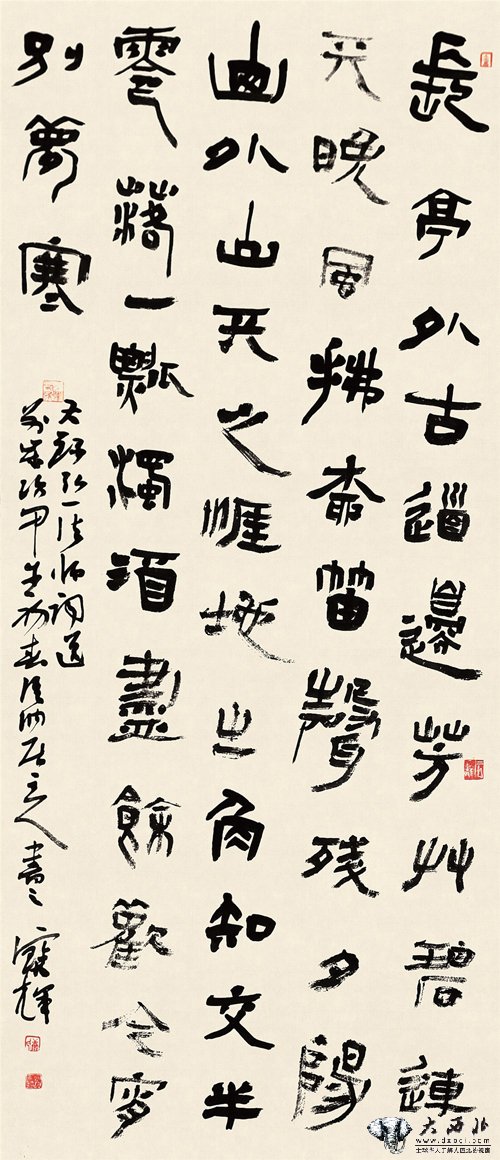 長亭外古道邊芳艸碧連
天晚風拂柳笛聲殘夕陽
山外山天之涯地之角知交半
零落一瓢濁酒盡餘歡今宵
別夢寒
右録弘一法師詞送
別歲次甲午初春居主人書之
大西北